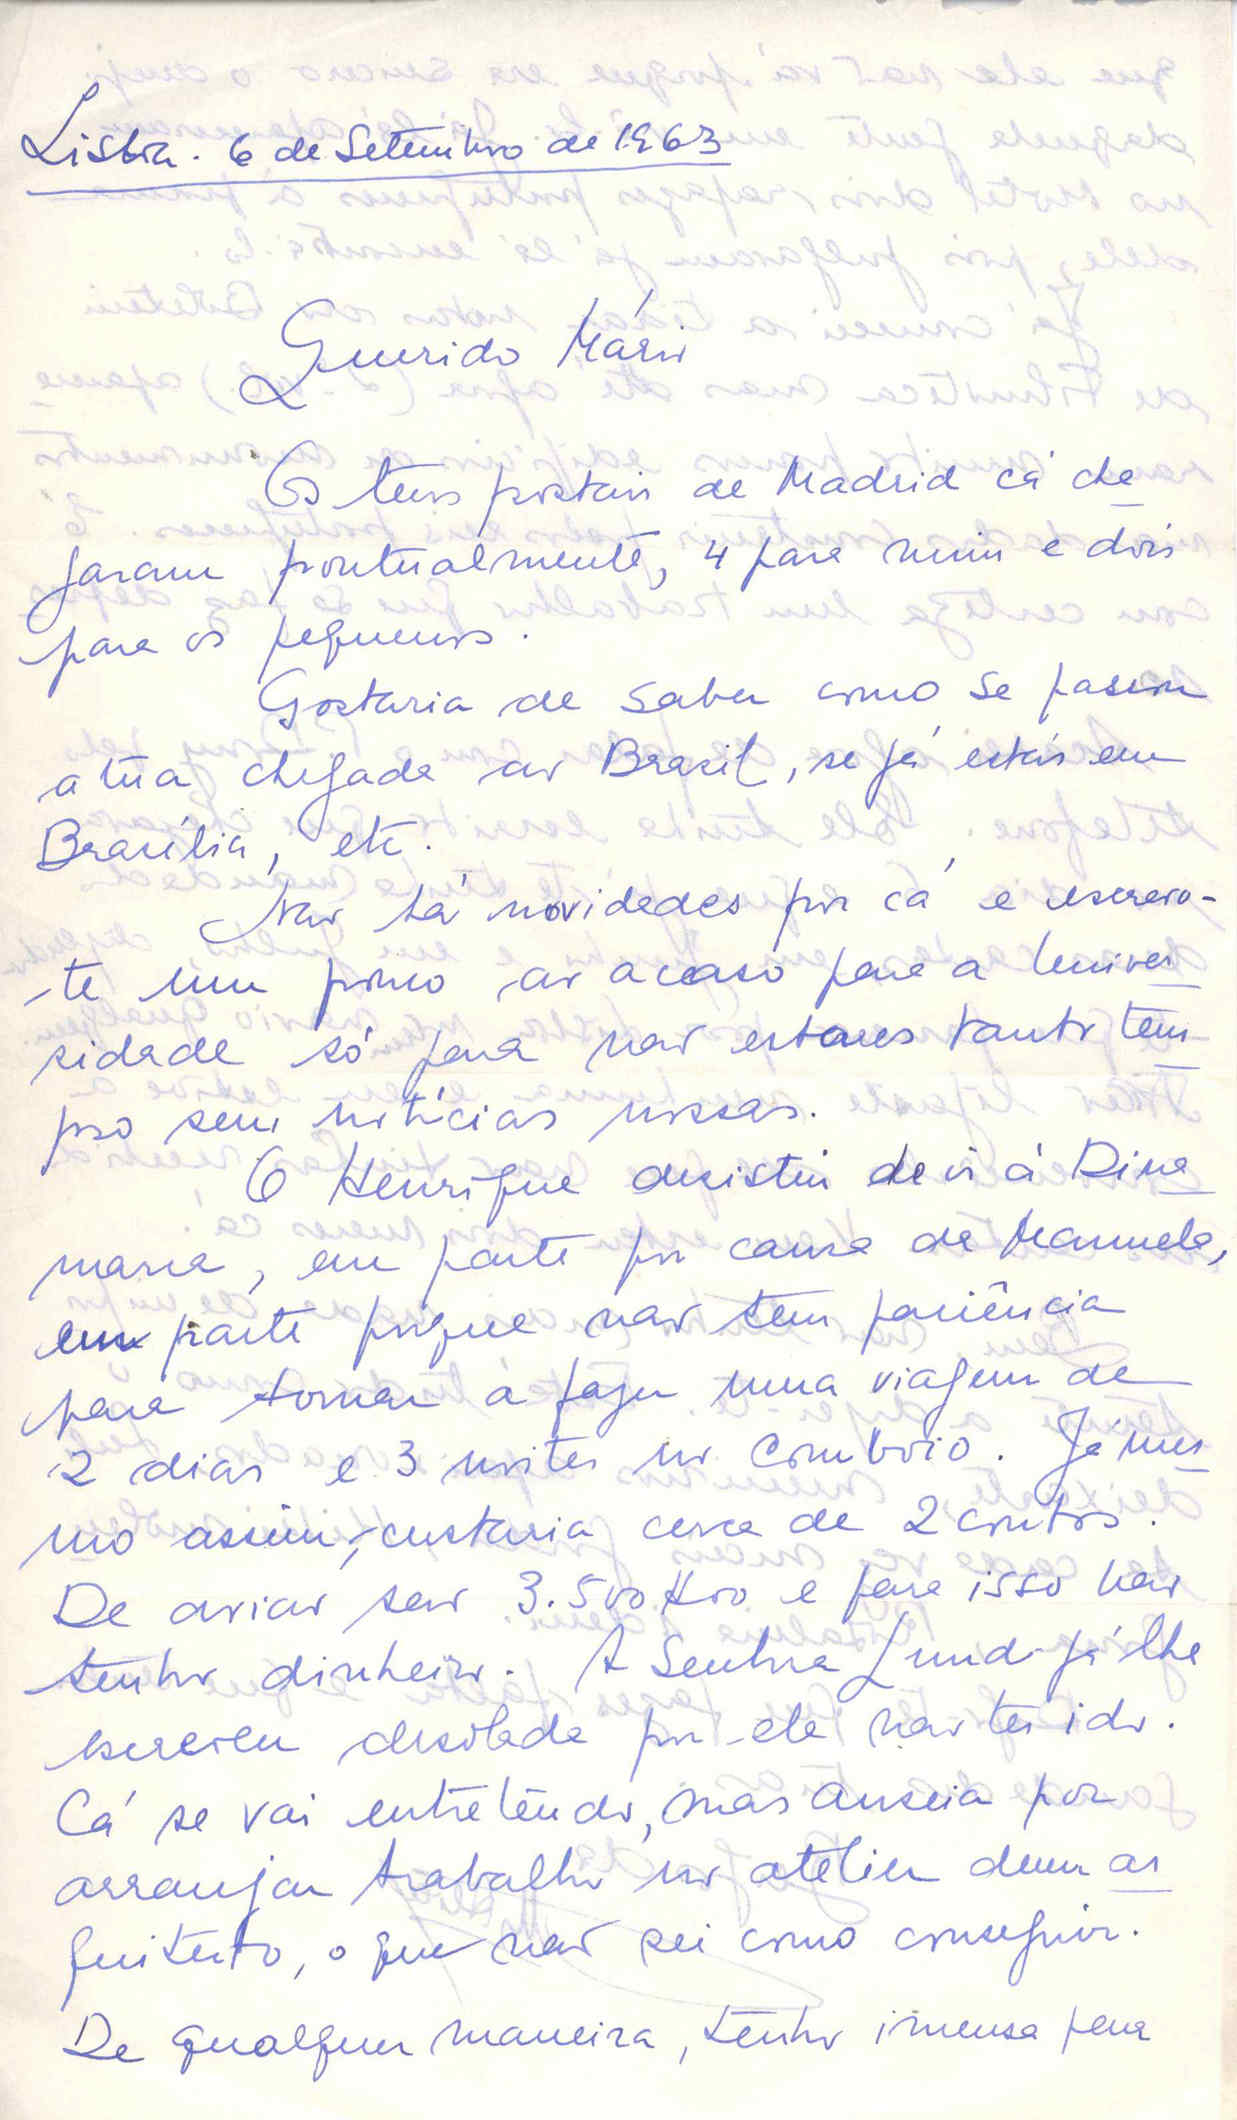 Lisboa. 6 de Setembro de 1963
Querido Mário
Os teus postais de Madrid cá che
garam pontualmente, 4 para mim e dois
para os pequenos.
Gostaria de saber como se passou
a tua chegada ao Brasil, se já estás em
Brasília, etc.
Não há novidades por cá e escrevo-
-te um pouco ao acaso para a Univer
sidade só para não estares tanto tem
po sem notícias nossas.
O Henrique desistiu de ir à Dina
marca, em parte por causa da Manuela,
em parte porque não tem paciência
para tornar a fazer uma viagem de
2 dias e 3 noites no comboio. Já mes
mo assim, custaria cerca de 2 contos.
De avião são 3.500$00 e para isso não
tenho dinheiro. A Senhora Lund já lhe
escreveu desolada por ele não ter ido.
Cá se vai entretendo, mas anseia por
arranjar trabalho no atelier dum ar
quitecto, o que não sei como conseguir.
De qualquer maneira, tenho imensa pena